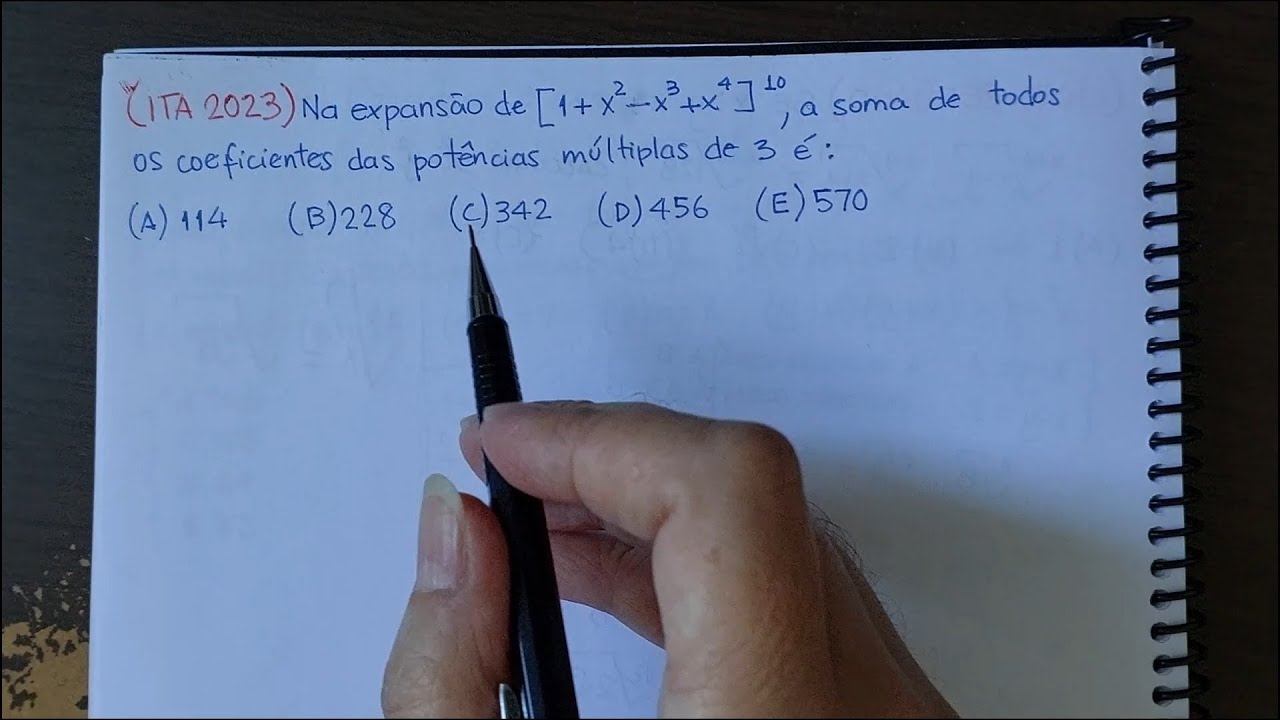 (ITA 2023) Na expansão de [1+x²-x³+x⁴]¹⁰, a soma de todos
os coeficientes das potências múltiplas de 3 é:
(A) 114 (B) 228 (C) 342 (D) 456 (E) 570